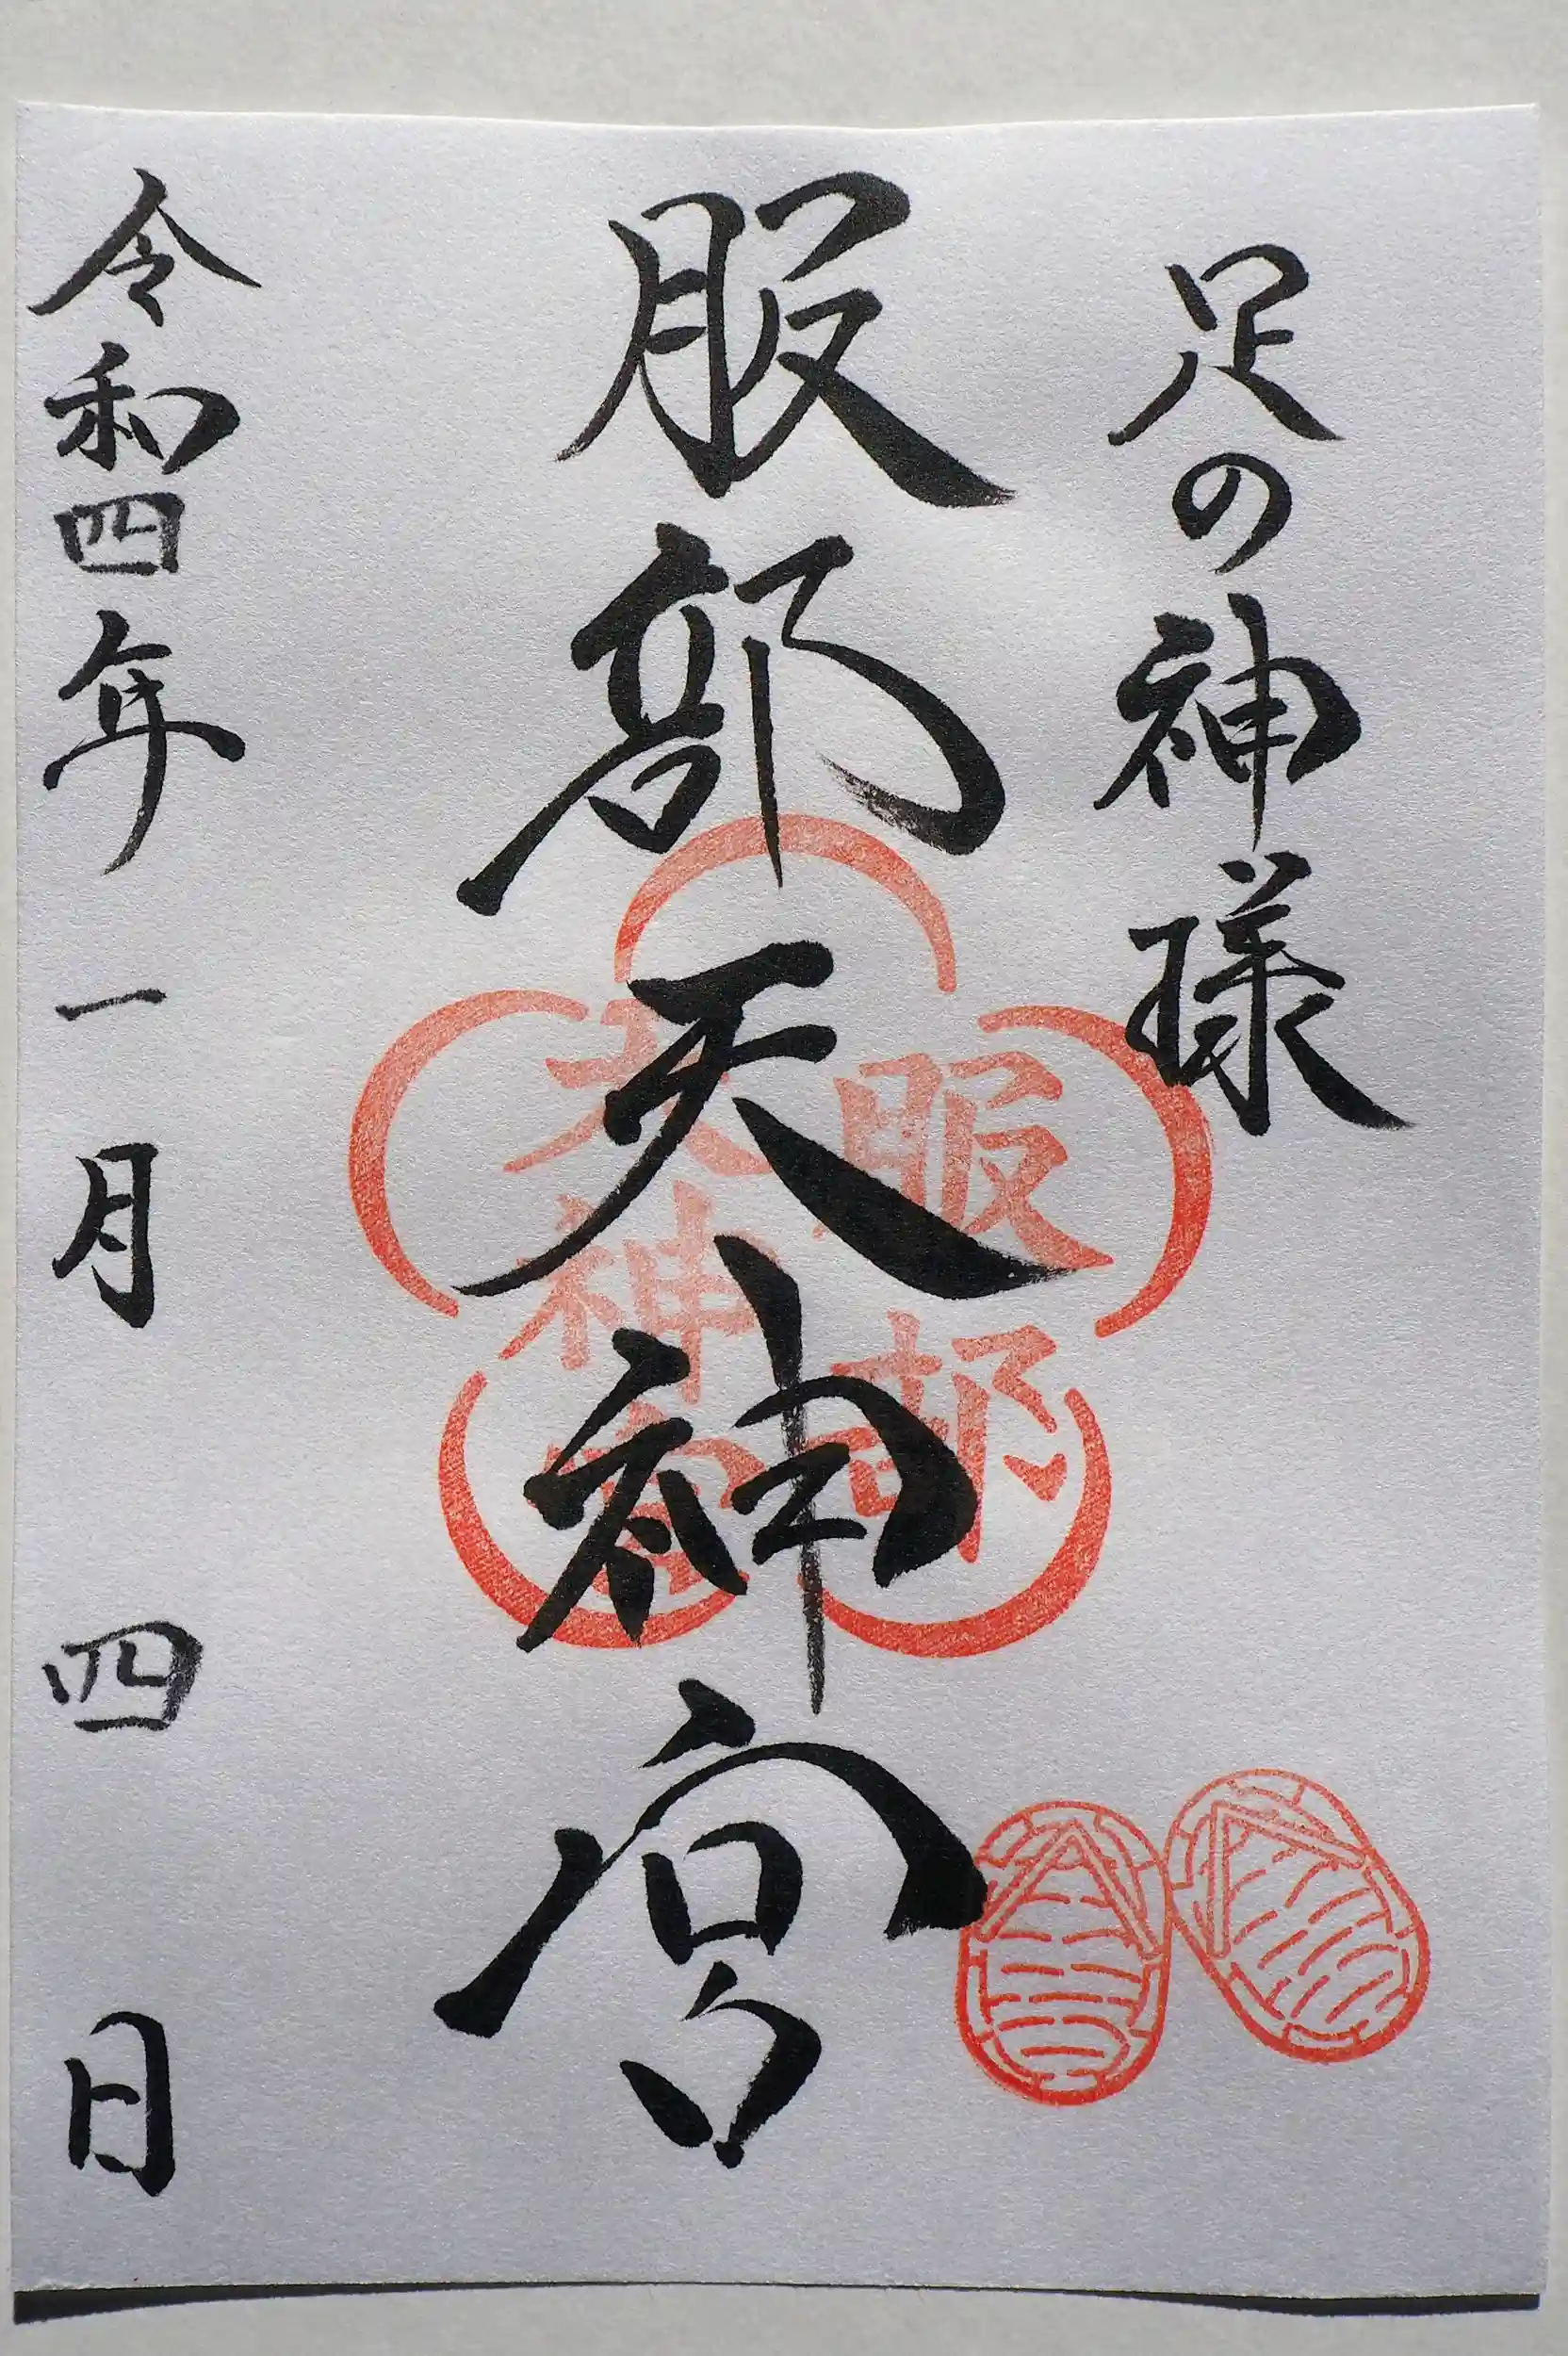 足の神様
服部天神宮
服部
天神宮
令和四年一月四日